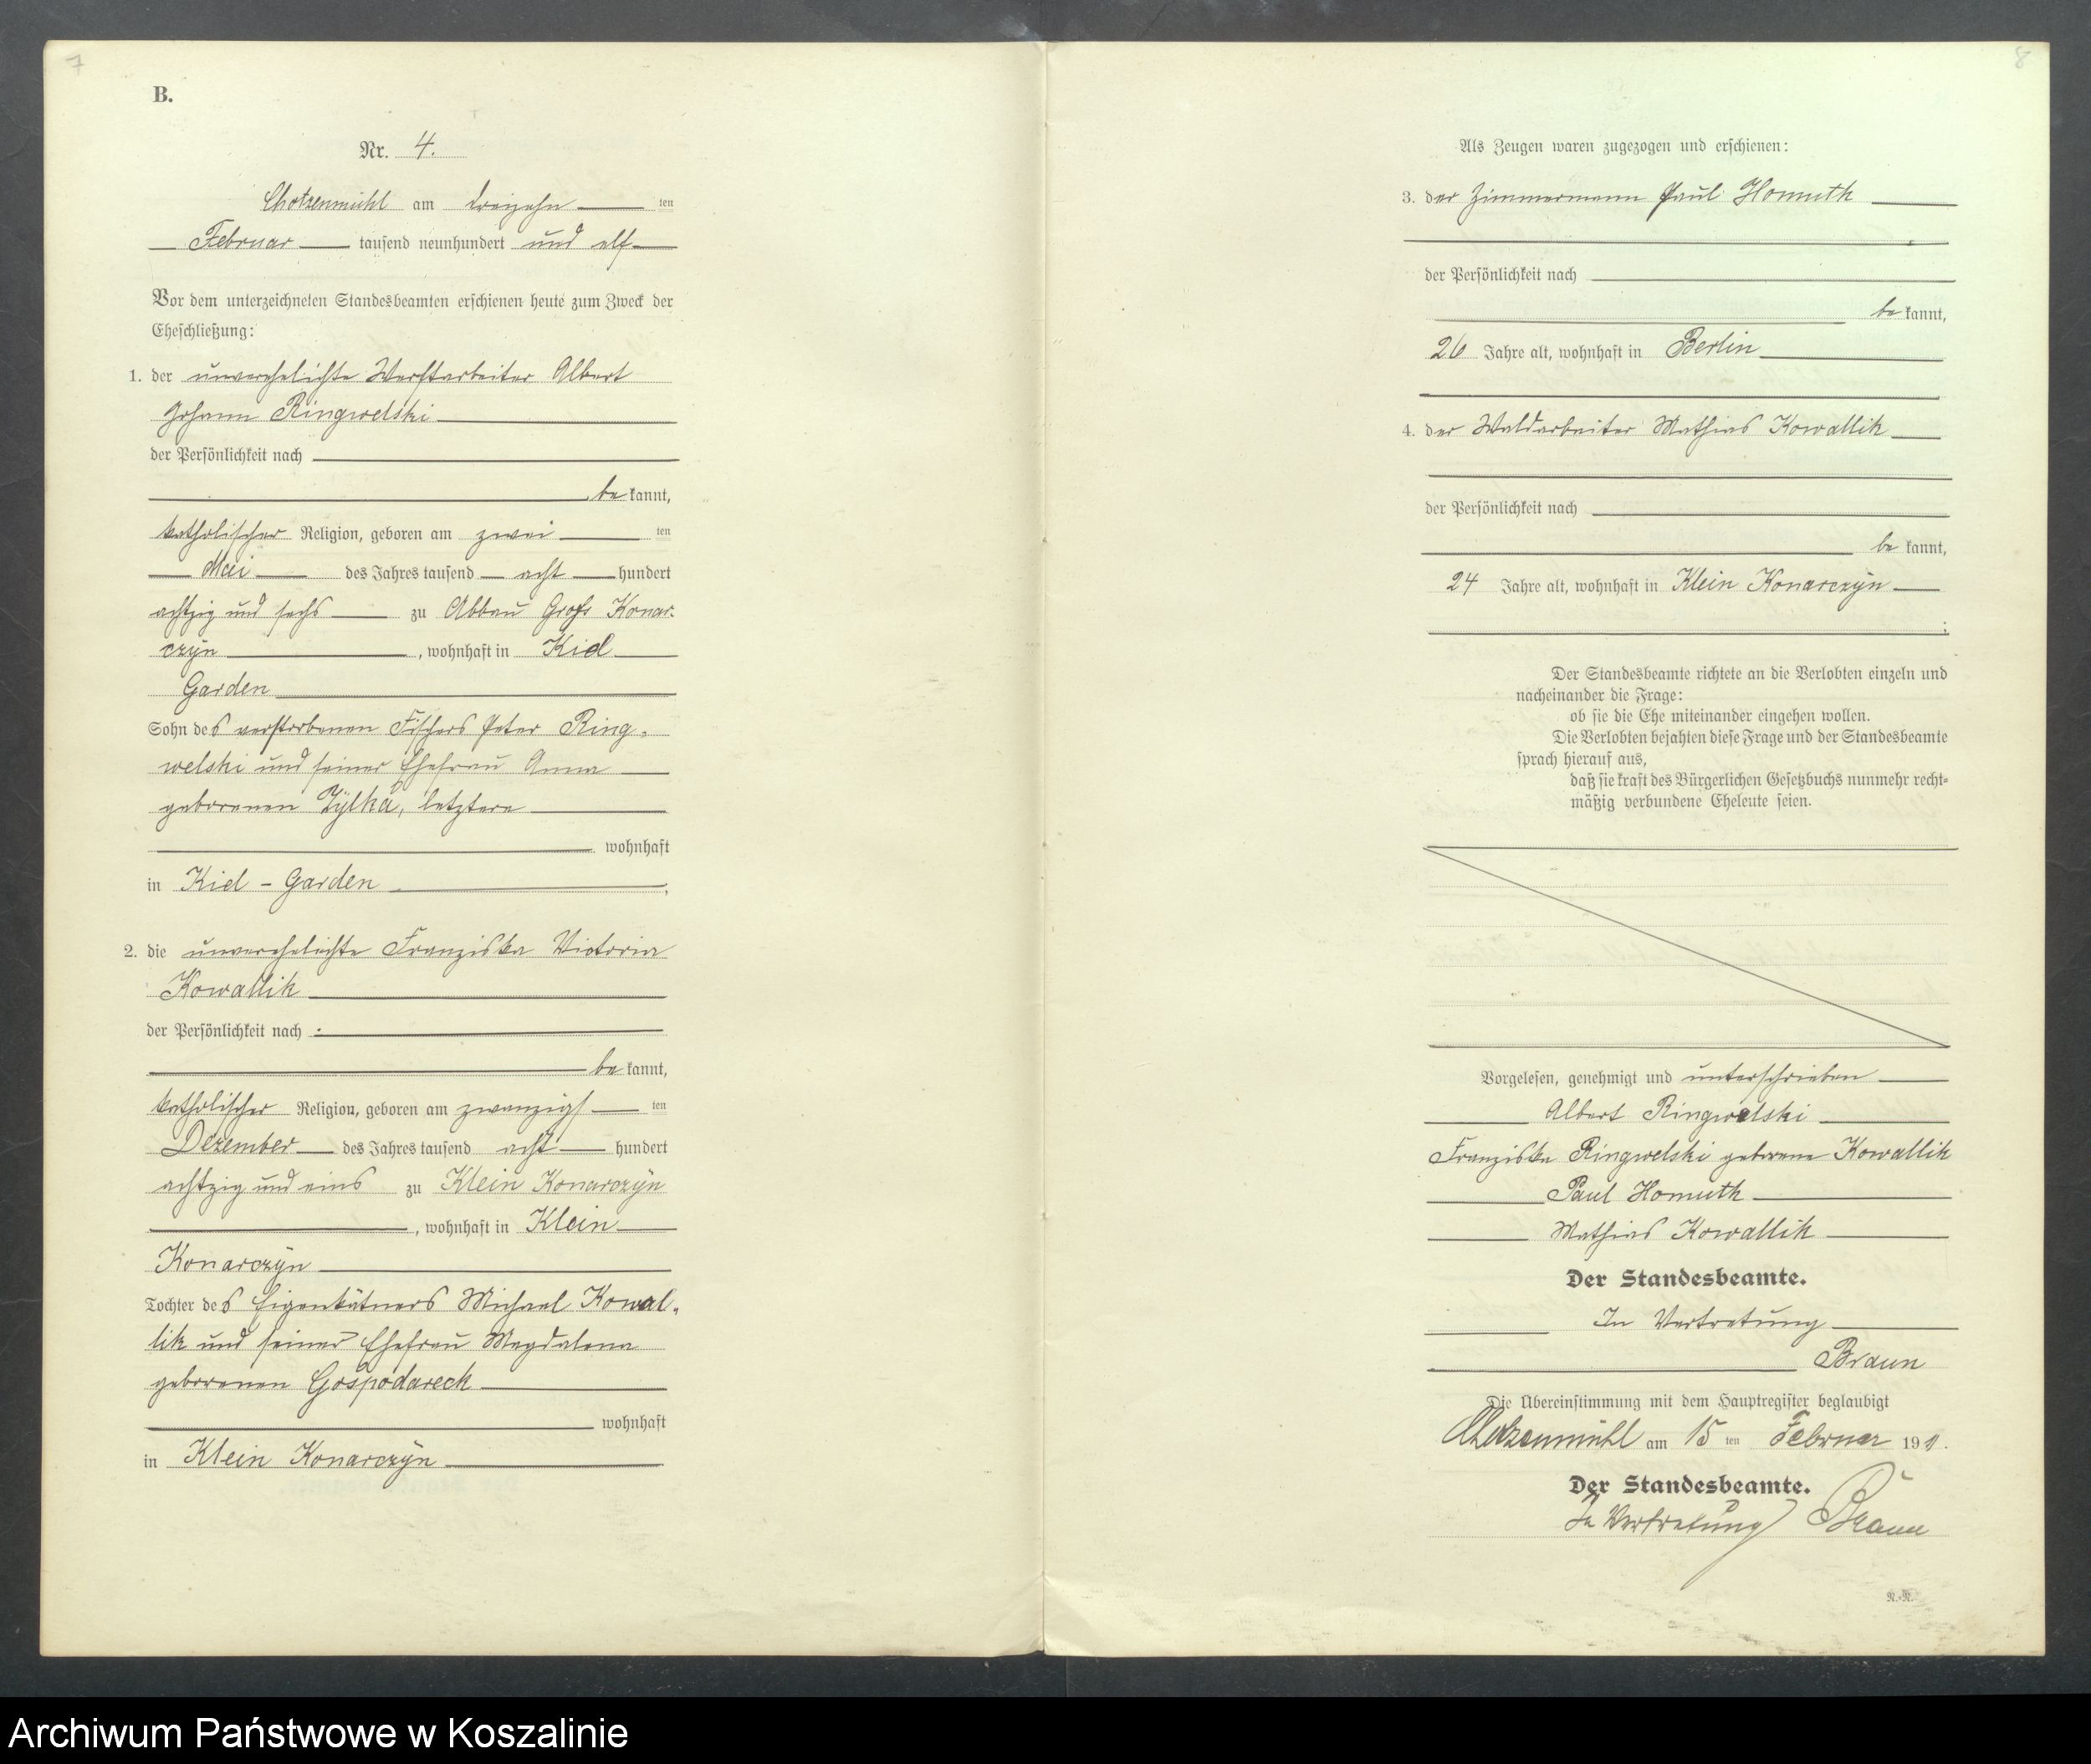 7
B.
Nr. 4.
Chotzenmühl am dreizehn ten
Februar tausend neunhundert und elf
Vor dem unterzeichneten Standesbeamten erschienen heute zum Zweck der
Eheschließung:
1. der unverehelichte Werftarbeiter Albert
Johann Ringwelski
der Persönlichkeit nach
be kannt,
katholischer Religion, geboren am zwei ten
Mai des Jahres tausend acht hundert
achtzig und sechs zu Abbau Groß Konar-
czyn, wohnhaft in Kiel
Garden
Sohn des verstorbenen Fischers Peter Ring-
welski und seiner Ehefrau Anna
geborenen Zylka, letztere
wohnhaft
in Kiel - Garden,
2. die unverehelichte Franziska Victoria
Kowallik
der Persönlichkeit nach
be kannt,
katholischer Religion, geboren am zwanzigs ten
Dezember des Jahres tausend acht hundert
achtzig und eins zu Klein Konarczyn
, wohnhaft in Klein
Konarczyn
Tochter des Eigenkätners Michael Kowal-
lik und seiner Ehefrau Magdalena
geborenen Gospodareck
wohnhaft
in Klein Konarczyn
8
Als Zeugen waren zugezogen und erschienen:
3. der Zimmermann Paul Homuth
der Persönlichkeit nach
be kannt,
26 Jahre alt, wohnhaft in Berlin
4. der Waldarbeiter Mathias Kowallik
der Persönlichkeit nach
be kannt,
24 Jahre alt, wohnhaft in Klein Konarczyn
;
Der Standesbeamte richtete an die Verlobten einzeln und
nacheinander die Frage:
ob sie die Ehe miteinander eingehen wollen.
Die Verlobten bejahten diese Frage und der Standesbeamte
sprach hierauf aus,
daß sie kraft des Bürgerlichen Gesetzbuchs nunmehr recht-
mäßig verbundene Eheleute seien.
Vorgelesen, genehmigt und unterschrieben
Albert Ringwelski
Franziska Ringwelski geborene Kowallik
Paul Homuth
Mathias Kowallik
Der Standesbeamte.
In Vertretung
Braun
Die Übereinstimmung mit dem Hauptregister beglaubigt
Chotzenmühl am 15 ten Februar 1911.
Der Standesbeamte.
In Vertretung Braun
N.-N.
Archiwum Państwowe w Koszalinie